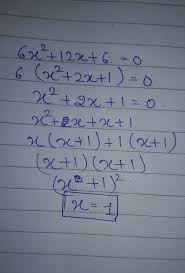 6x²+12x+6=0
6(x²+2x+1)=0
x²+2x+1=0
x²+x+x+1
x(x+1)+1(x+1)
(x+1)(x+1)
(x²+1)²
x=1